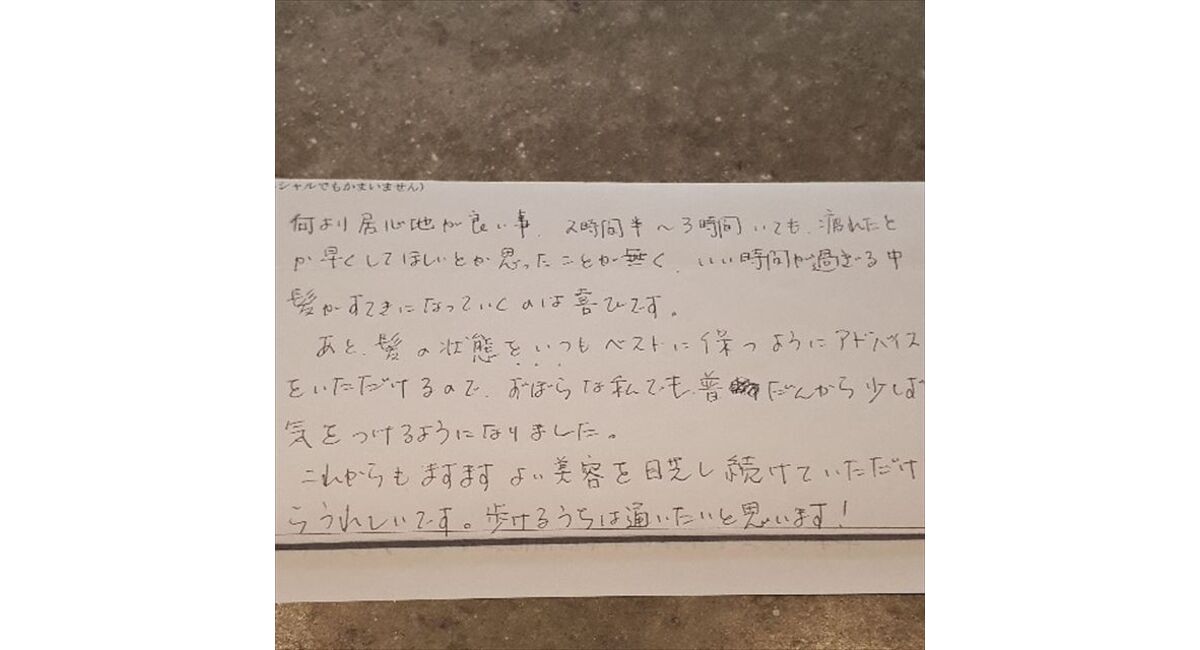 シャルでもかまいません）
何より居心地が良い事、2時間半～3時間いても、疲れたと
か早くしてほしいとか思ったことが無く、いい時間が過ぎる中
髪がすてきになっていくのは喜びです。
あと、髪の状態をいつもベストに保つようにアドバイス
をいただけるので、ずぼらな私でも、普だんから少しは
気をつけるようになりました。
これからもますますよい美容を目芝し続けていただけ
らうれしいです。歩けるうちは通いたいと思います！